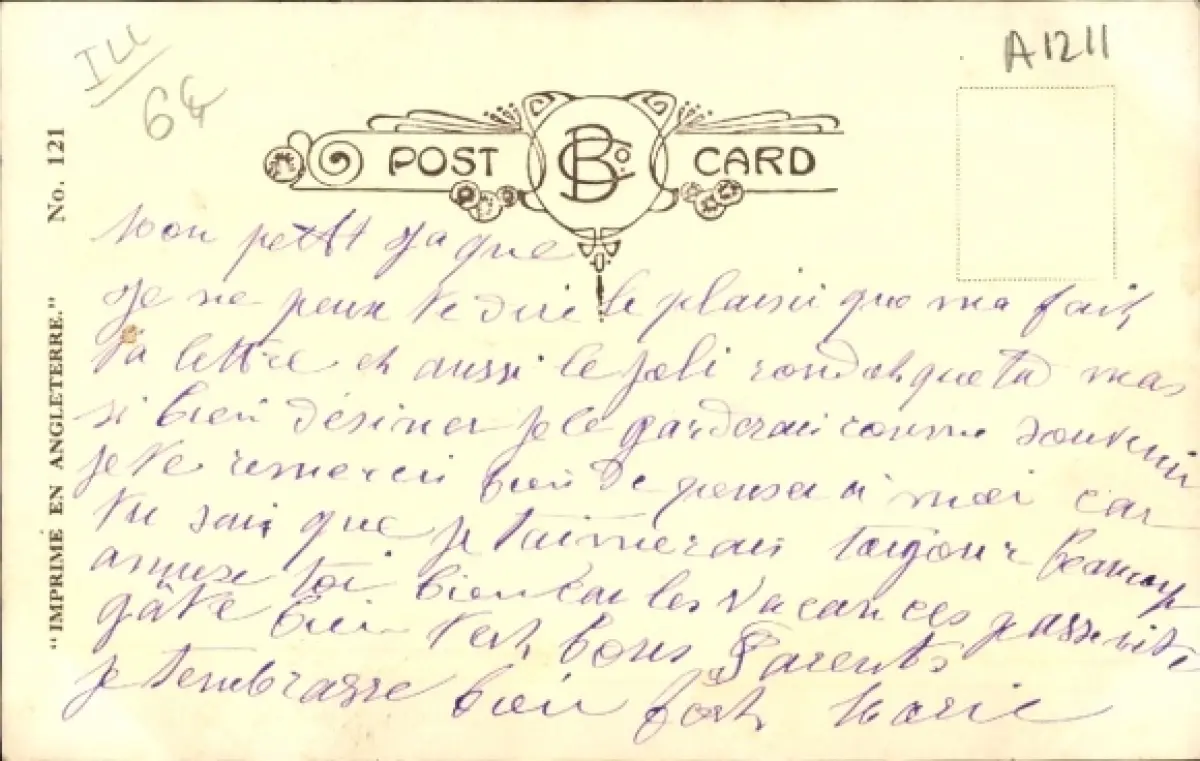 Ill
6
A1211
No. 121
"IMPRIMÉ EN ANGLETERRE."
POST BCo. CARD
Mon petit Jaque
Je ne peux te dire le plaisir que ma fait
ta lettre et aussi le joli que tu mas
si bien désiner je le garderai comme souvenir
je te remerci bien de pensa a moi car
tu sai que je taimerais toujour beaucoup
amuse toi bien car les vacances passe vite
gâte bien test bons Parents
je tembrasse bien fort Marie